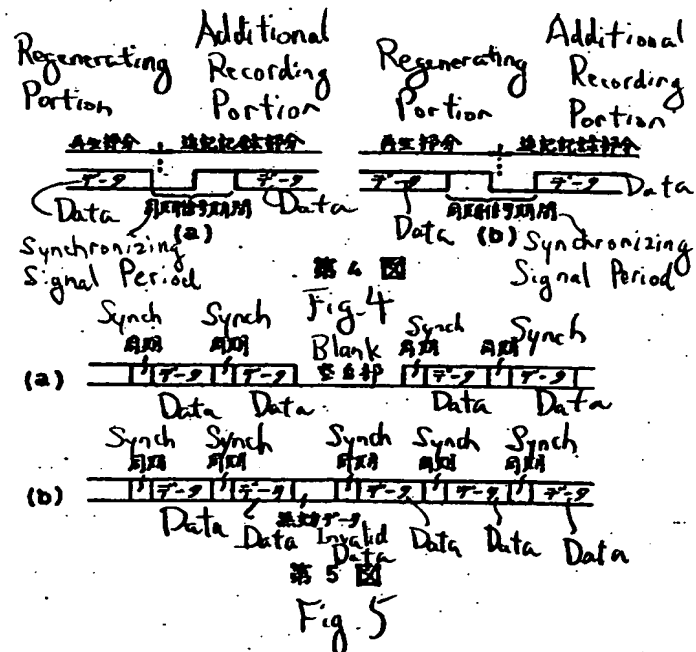 Regenerating Portion
Additional Recording Portion
Regenerating Portion
Additional Recording Portion
再生部分 追記記録部分
再生部分 追記記録部分
データ データ
データ データ Data
Data 同期信号期間 Data
Data 同期信号期間
(a)
(b)
Synchronizing Signal Period
Synchronizing Signal Period
第 4 図
Fig. 4
Synch Synch Blank Synch Synch
同期 同期 空白部 同期 同期
(a) データ データ データ データ
Data Data Data Data
Synch Synch Synch Synch Synch
同期 同期 同期 同期 同期
(b) データ データ データ データ データ
無効データ
Data Data Invalid Data Data Data Data
第 5 図
Fig. 5